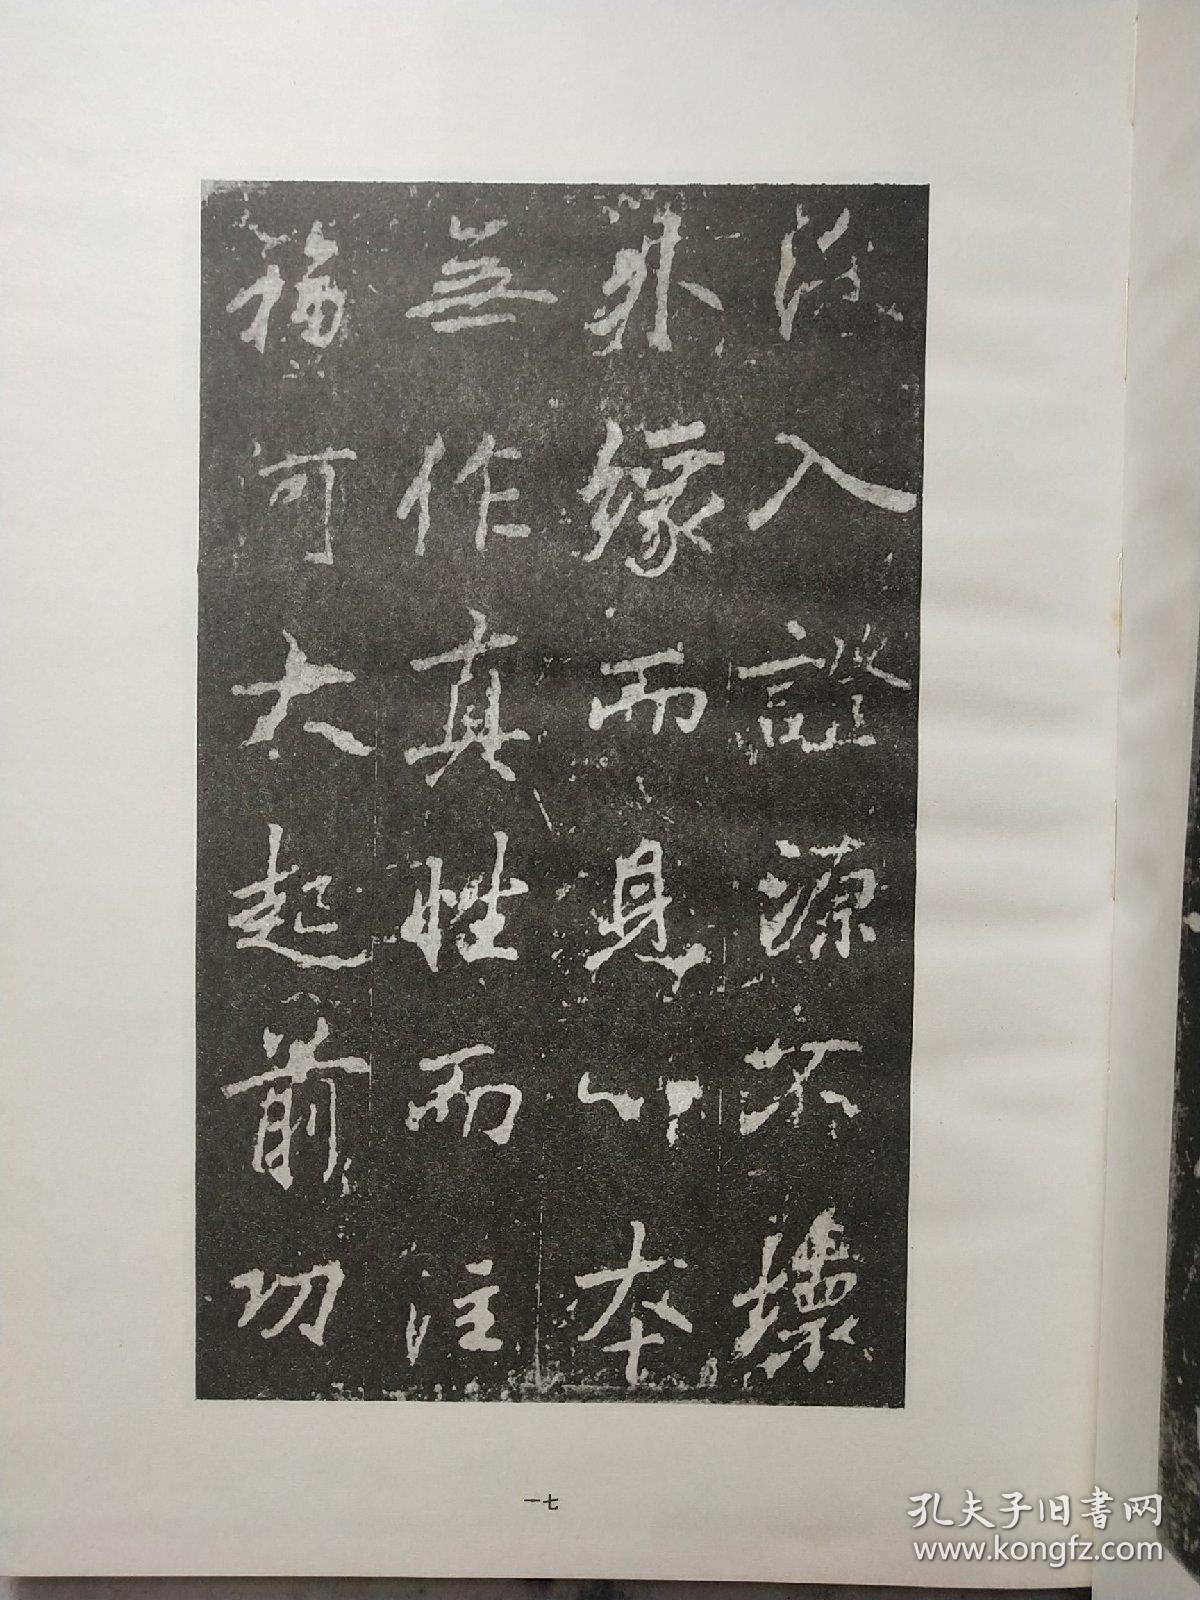 入證源不壞
外緣而見心本
無作真性而注
福河大起前功
一七
孔夫子旧書网
www.kongfz.com